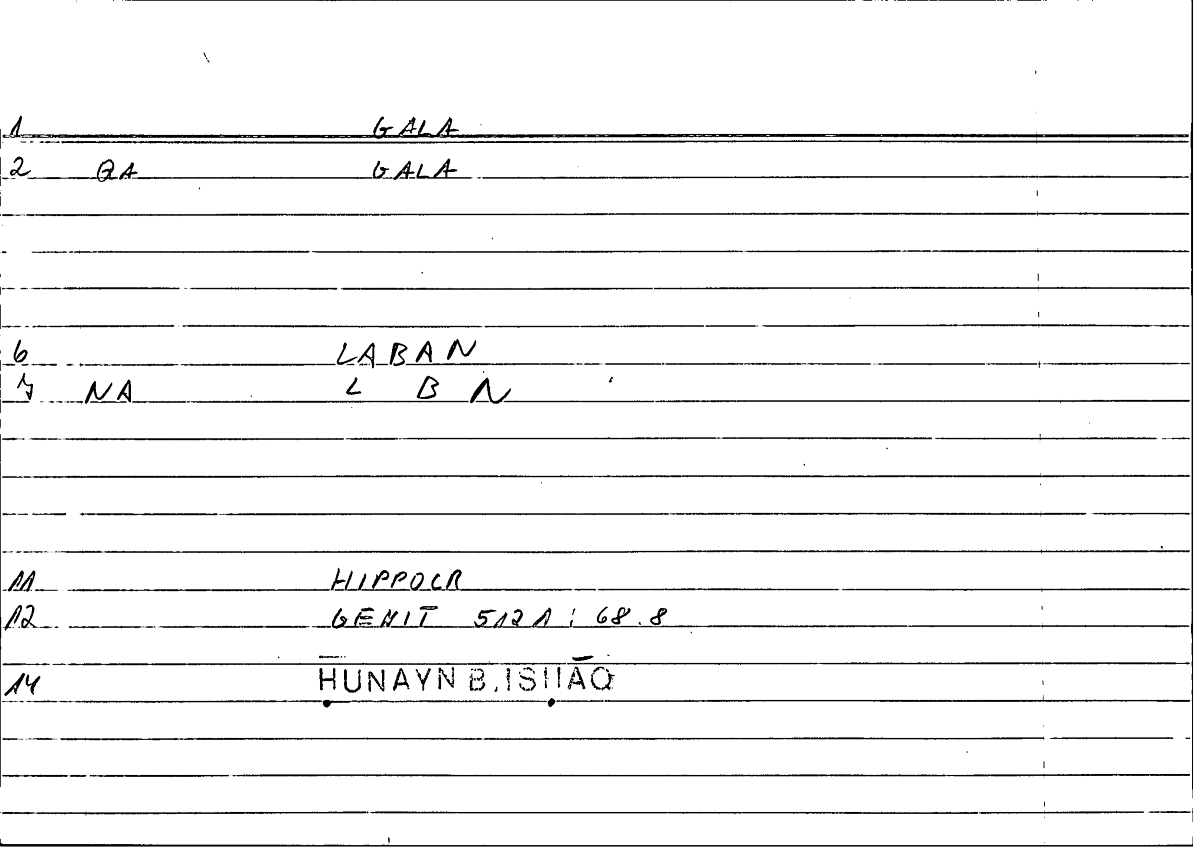 1 GALA
2 QA GALA
6 LABAN
7 NA L B N
11 HIPPOCR
12 GENIT 5121 : 68.8
14 ḤUNAYN B. ISḤĀQ